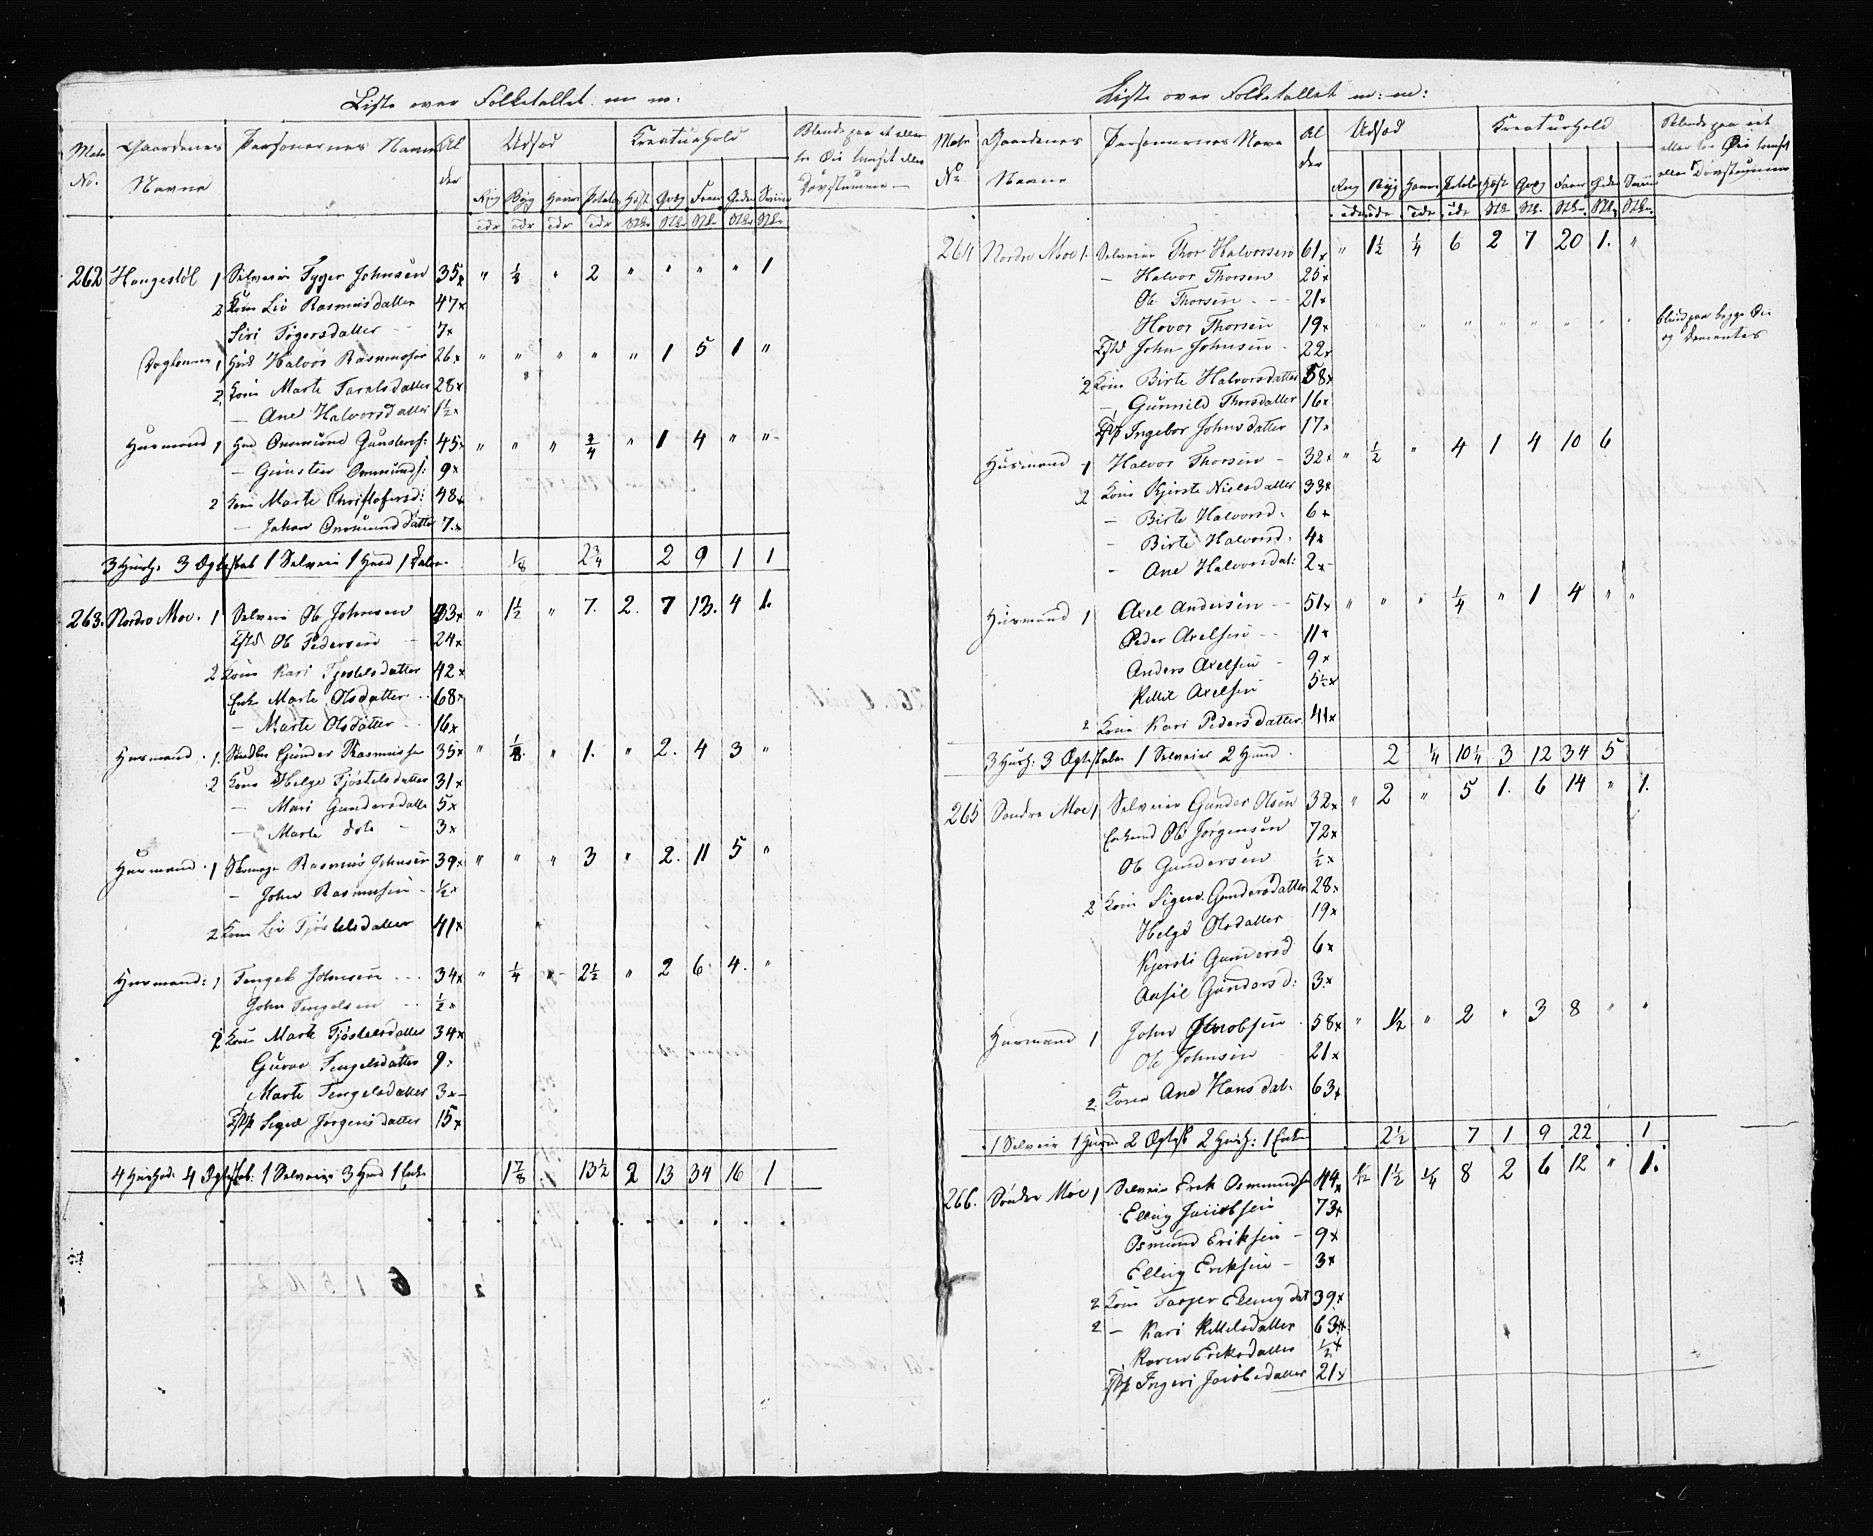 Liste over Folketallet m m:
Matr No. Gaardenes Navne Personernes Navne Alder Udsæd Kreaturhold Blinde paa et eller to Øie tunset eller Døvstumme —
Rug Byg Havre Potetes Hest Qvæg Faar Geder Sviin
Tdr Tdr Tdr Tdr Stk Stk Stk Stk Stk
262 Haugestøl 1 Selveier Tyger Johnsen 35x " 1/8 " 2 " " " " 1
2 Kone Liv Rasmusdatter 47x
Siri Tygersdatter 7x
Daglønner 1 Husd Halvor Rasmussen 26x " " " " " 1 5 1 "
2 Kone Marte Taraldsdatter 28x
— Ane Halvorsdatter 1½x
Husmand 1 Hmd Osmund Gunstens: 45x " " " 3/4 " 1 4 " "
— Gunsten Osmunds: 9x
2 Kone Marte Christofersd: 48x
— Johan Osmundsdatter 7x
3 Huush: 3 Ægteskab 1 Selveier 1 Husd 1 1/8 2 3/4 2 9 1 1
263. Nordre Moe. 1 Selveier Ole Johnsen 43x " 1½ " 7. 2. 7 13. 4 1.
Tjst Ole Pedersen 24x
2 Kone Kari Tjøstelsdatter 42x
Enke Marte Olsdatter 68x
— Marte Olsdatter 16x
Husmand 1. Gunder Rasmussen 35x " 1/8 " 1. " 2. 4 3 "
2 Kone Helge Tjøstelsdatter 31x
— Mari Gundersdatte 5x
— Marte dito — 3x
Husmand 1 Rasmus Johnsen 39x " " " 3 " 2. 11 5 "
— John Rasmusen ½x
2 Kone Liv Tjøstelsdatter 41x
Husmand: 1 Tengel Johnsen 34x " 1/4 " 2½ " 2 6 4. "
John Tengelsen ½x
2 Kone Marte Tjøstelsdatter 34x
Guroe Tengelsdatter 9x
Marte Tengelsdatter 3x
Tjp Sigrid Jørgensdatter 15x
4 Huushol: 4 Ægteskab: 1 Selveier 3 Husd 1 Enke 1 7/8 13½ 2 13 34 16 1
Liste over Folketallet m: m:
Matr No. Gaardenes Navne Personernes Navne Alder Udsæd Kreaturhold Blinde paa eet eller to Øie tunset eller Døvstumme
Rug Byg Havre Potetes Hest Qvæg Faar Geder Sviin
Tdr Tdr Tdr Tdr Stk Stk. Stk. Stk. Stk.
264 Nordre Moe 1. Selveier Thor Halvorsen 61x " 1½ 1/4 6 2 7 20 1. "
— Halvor Thorsen 25x
Ole Thorsen 21x
Hovor Thorsen 19x " " " " " " " " " blind paa begge Øi og Dementes
Tjst John Johnsen 22x
2 Kone Birte Halvorsdatter 58x
— Gunnild Thorsdatter 16x
Tjp Ingebor Johnsdatter 17x
Husmand 1 Halvor Thorsen 32x " ½ " 4 1 4 10 6
2 Kone Kjerste Nielsdatter 33x
— Birte Halvorsd. 6x
— Birte Halvorsd. 4x
— Ane Halvorsdat: 2x
Husmand 1 Axel Andersen 51x " " " 1/4 " 1 4 " "
Peder Axelsen 11x
Anders Axelsen 9x
Kittel Axelsen 5½x
2 Kone Kari Pedersdatter 41x
3 Huush: 3 Ægteskaber 1 Selveier 2 Husmd 2 1/4 10 1/4 3 12 34 5
265 Søndre Moe 1 Selveier Gunder Olsen 32x " 2 " 5 1. 6 14 " 1.
Enkemd Ole Jørgensen 72x
Ole Gundersen ½x
2 Kone Siger Gundersdatter 28x
Helge Olsdatter 19x
Kjersti Gundersd 6x
Aasil Gundersd: 3x
Husmand 1 John Jacobsen 58x " ½ " 2 " 3 8 " "
Ole Johnsen 21x
2 Kone Ane Hansdat: 63x
1 Selveier 1 Husm 2 Ægtesk 2 Huush: 1 Enkem 2½ 7 1 9 22 1
266. Søndre Moe 1 Selveier Erik Osmundsen 44x ½ 1½ 1/4 8 2 6 12 " 1.
Elling Jacobsen 73x
Osmund Eriksen 9x
Elling Eriksen 3x
2 Kone Tasjer Ellingdat 39x
2 — Kari Kittelsdatter 63x
Karen Eriksdatter ½x
Tjp Ingeri Jacobsdatter 21x